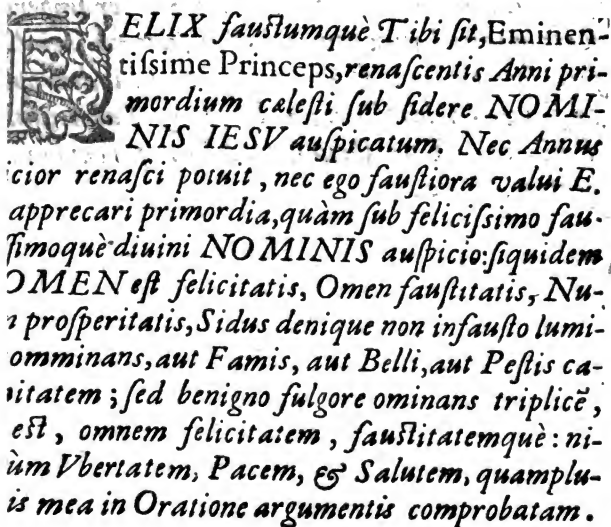 FELIX faustumquè Tibi sit, Eminen-
tissime Princeps, renascentis Anni pri-
mordium cælesti sub sidere NOMI-
NIS IESV auspicatum. Nec Annus
cior renasci potuit, nec ego faustiora valui E.
apprecari primordia, quàm sub felicissimo fau-
ssimoquè diuini NOMINIS auspicio: siquidem
OMEN est felicitatis, Omen faustitatis, Nu-
n prosperitatis, Sidus denique non infausto lumi-
omminans, aut Famis, aut Belli, aut Pestis ca-
itatem; sed benigno fulgore ominans triplicē,
est, omnem felicitatem, faustitatemquè: ni-
ùm Vbertatem, Pacem, & Salutem, quamplu-
is mea in Oratione argumentis comprobatam.